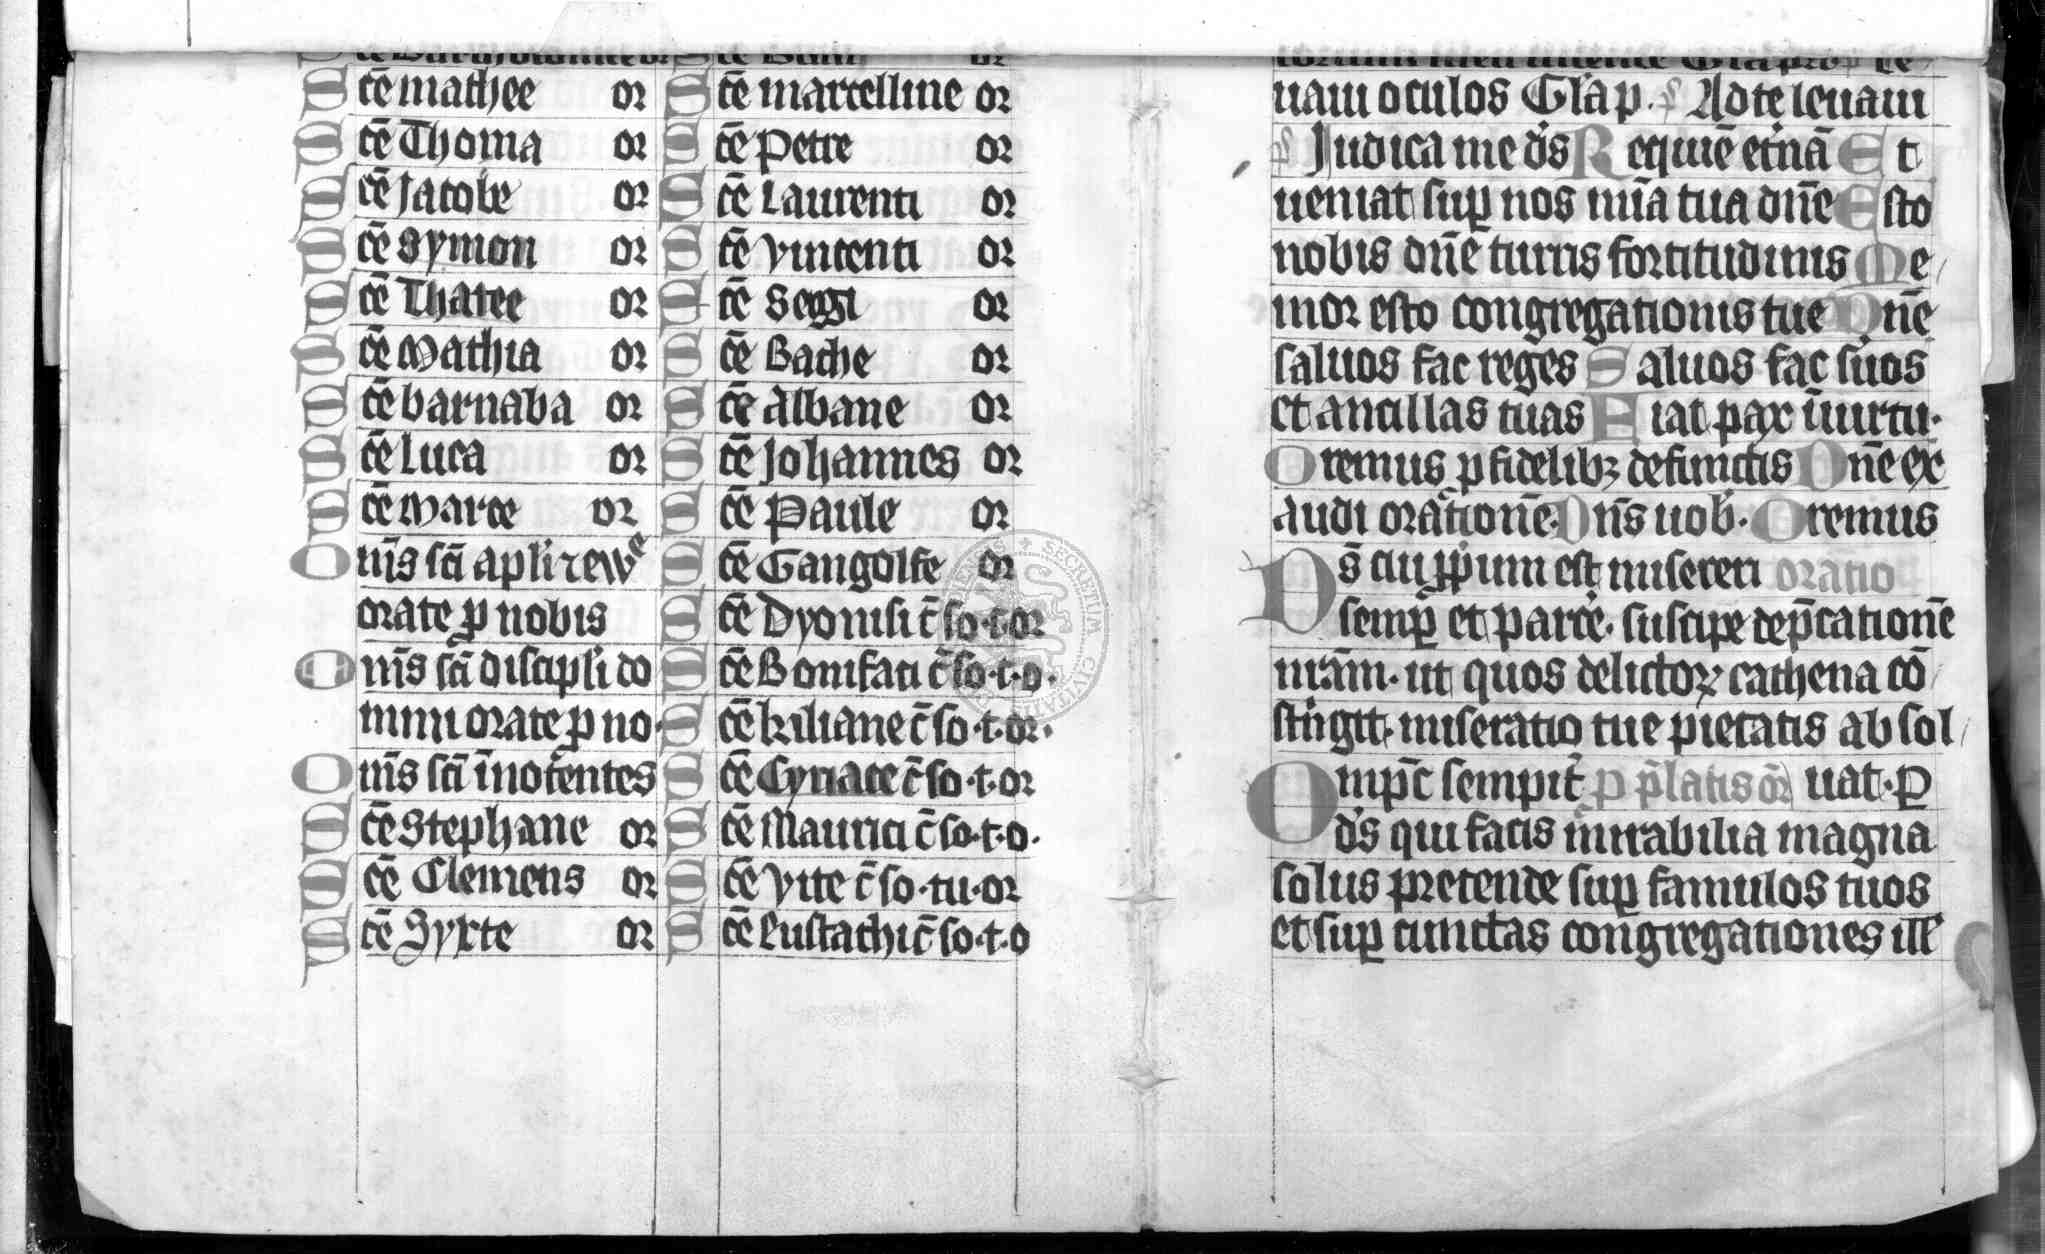 Scē mathee or
Scē Thoma or
Scē Jacobe or
Scē Symon or
Scē Thatee or
Scē Mathia or
Scē barnaba or
Scē Luca or
Scē Marce or
Om̄s sc̄i apl'i ⁊ eww̄e
orate ꝓ nobis
Om̄s sc̄i discipl'i do
mini orate ꝓ no·
Om̄s sc̄i īnocentes
Scē Stephane or
Scē Clemens or
Scē Syxte or
Scē marcelline or
Scē Petre or
Scē Laurenti or
Scē vincenti or
Scē Sergi or
Scē Bache or
Scē Albane or
Scē Johannes or
Scē Paule or
Scē Gangolfe or
Scē Dyonisi c̄ so·t·or
Scē Bonifati c̄ so·t·o·
Scē kiliane c̄ so·t·or·
Scē Cyriace c̄ so·t·or
Scē Maurici c̄ so·t·o·
Scē vite c̄ so·tu·or
Scē Eustachi c̄ so·t·o
uaui oculos Gl'a p. Ad te leuaui
Judica me d's Requiē et'nā Et
ueniat sup nos mīa tua dn̄e Esto
nobis dn̄e turris fortitudinis Me
mor esto congregationis tue Dn̄e
saluos fac reges Saluos fac s'uos
et ancillas tuas Fiat pax ī uirtu·
Oremus p fidelibꝫ defunctis Dn̄e ex
audi orationē· Dn̄s uob'· Oremus
Ds̄ cui ꝓp'um est misereri oratio
semp et parce· suscipe dep̄cationē
nrām· ut quos delictoꝝ cathena cō
st'ngit· miseratio tue pietatis absol
Omp̄c sempit' p p̄latis or̄ uat· P
d's qui facis mirabilia magna
solus pretende sup famulos tuos
et sup cunctas congregationes ill'